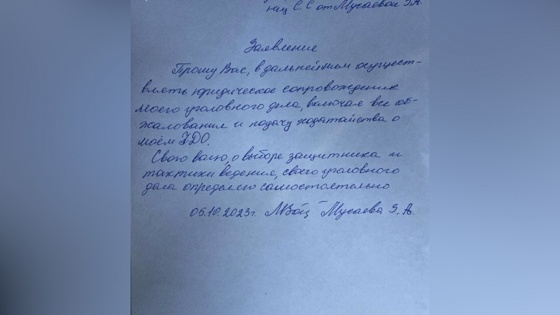 нац С. С от Мусаевой З.А.
Заявление
Прошу Вас, в дальнейшем осущест-
влять юридическое сопровождение
моего уголовного дела, включая все об-
жалования и подачу ходатайства о
моём УДО.
Свою волю, о выборе защитника и
тактики ведения, своего уголовного
дела определяю самостоятельно
06.10.2023г. Мусаева З. А.